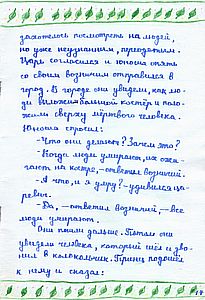 захотелось посмотреть на людей,
но уже неузнанным, переодетым.
Царь согласился и юноша опять
со своим возничим отправился в
город. В городе они увидели, как лю-
ди выложили большой костёр и поло-
жили сверху мёртвого человека.
Юноша спросил:
-Что они делают? Зачем это?
-Когда люди умирают, их сжи-
гают на костре,-ответил возничий.
-А что, и я умру? -удивился ца-
ревич.
-Да, -ответил возничий,-все
люди умирают.
Они пошли дальше. Потом они
увидели человека, который шёл и зво-
нил в колокольчик. Принц подошёл
к нему и сказал: